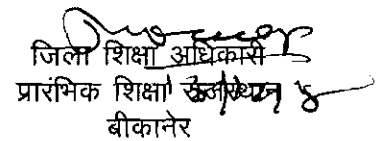 जिला शिक्षा अधिकारी
प्रारंभिक शिक्षा
बीकानेर